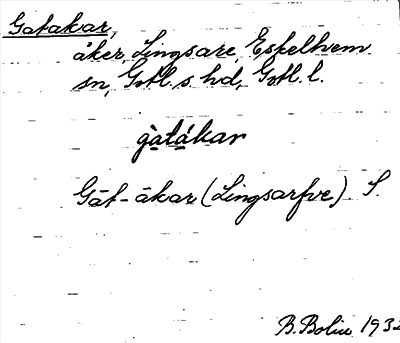 Gatakar,
åker, Lingsare, Eskelhem
sn, Gotl. s. hd, Gotl. l.
gatákar
Gāt-ākar (Lingsarfve) S.
B. Bolin 1932